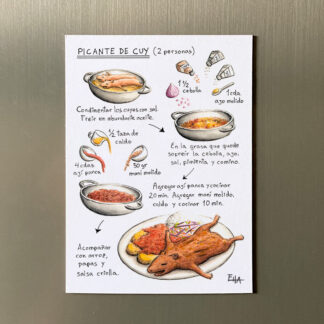 PICANTE DE CUY (2 personas)
Condimentar los cuyes con sal.
Freír en abundante aceite.
1 ½
cebolla
1 cda
ajo molido
½ taza
de
caldo
4 cdas
ají panca
50 gr
maní molido
En la grasa que quede
sofreír la cebolla, ajo,
sal, pimienta y comino.
Agregar ají panca y cocinar
20 min. Agregar maní molido,
caldo y cocinar 10 min.
Acompañar
con arroz,
papas y
salsa criolla.